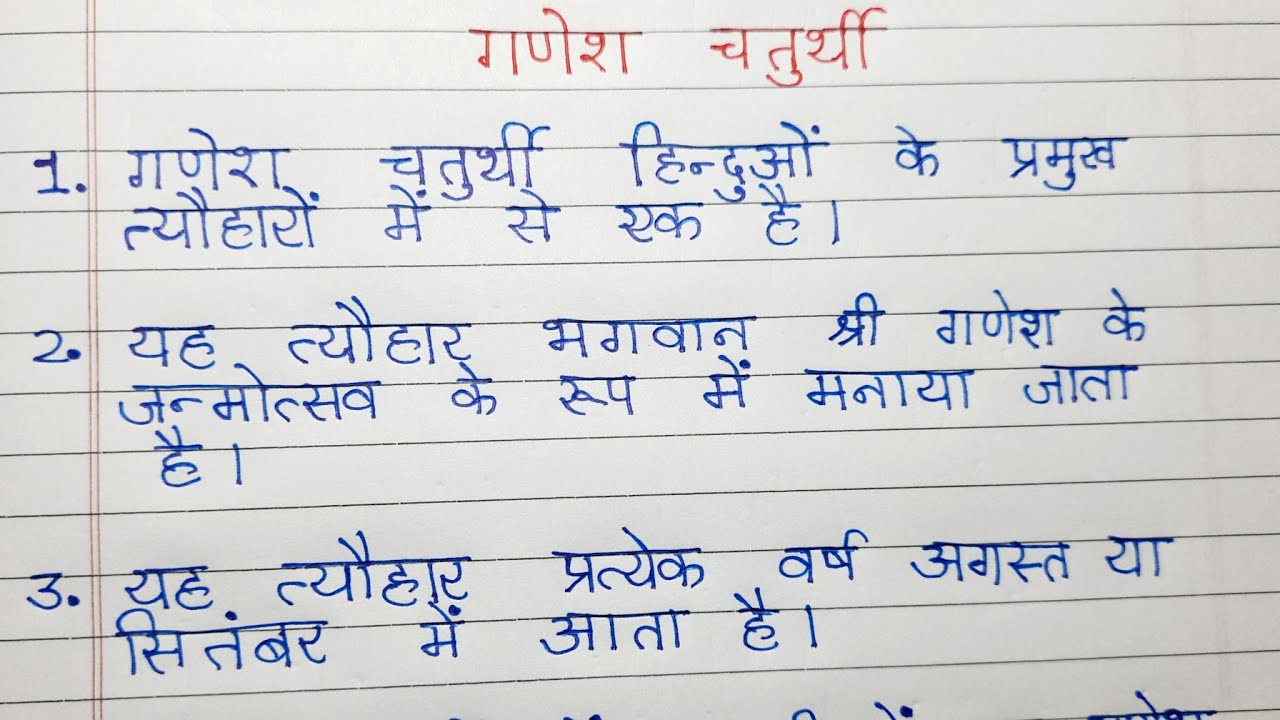 गणेश चतुर्थी
1. गणेश चतुर्थी हिन्दुओं के प्रमुख
त्यौहारों में से एक है।
2. यह त्यौहार भगवान श्री गणेश के
जन्मोत्सव के रूप में मनाया जाता
है।
3. यह त्यौहार प्रत्येक वर्ष अगस्त या
सितंबर में आता है।